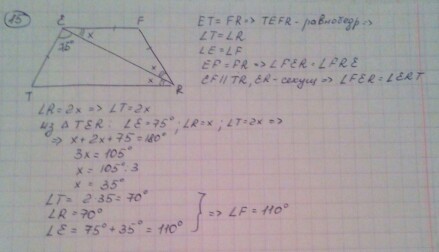 85
E F
x
75°
x
x
T R
ET = FR => TEFR - равнобедр =>
∠T = ∠R
∠E = ∠F
EF = FR => ∠FER = ∠FRE
EF || TR, ER - секущ => ∠FER = ∠ERT
∠R = 2x => ∠T = 2x
Из △TER: ∠E = 75°; ∠R = x; ∠T = 2x =>
=> x + 2x + 75 = 180°
3x = 105°
x = 105 : 3
x = 35°
∠T = 2·35 = 70°
∠R = 70°
∠E = 75° + 35° = 110°
=> ∠F = 110°